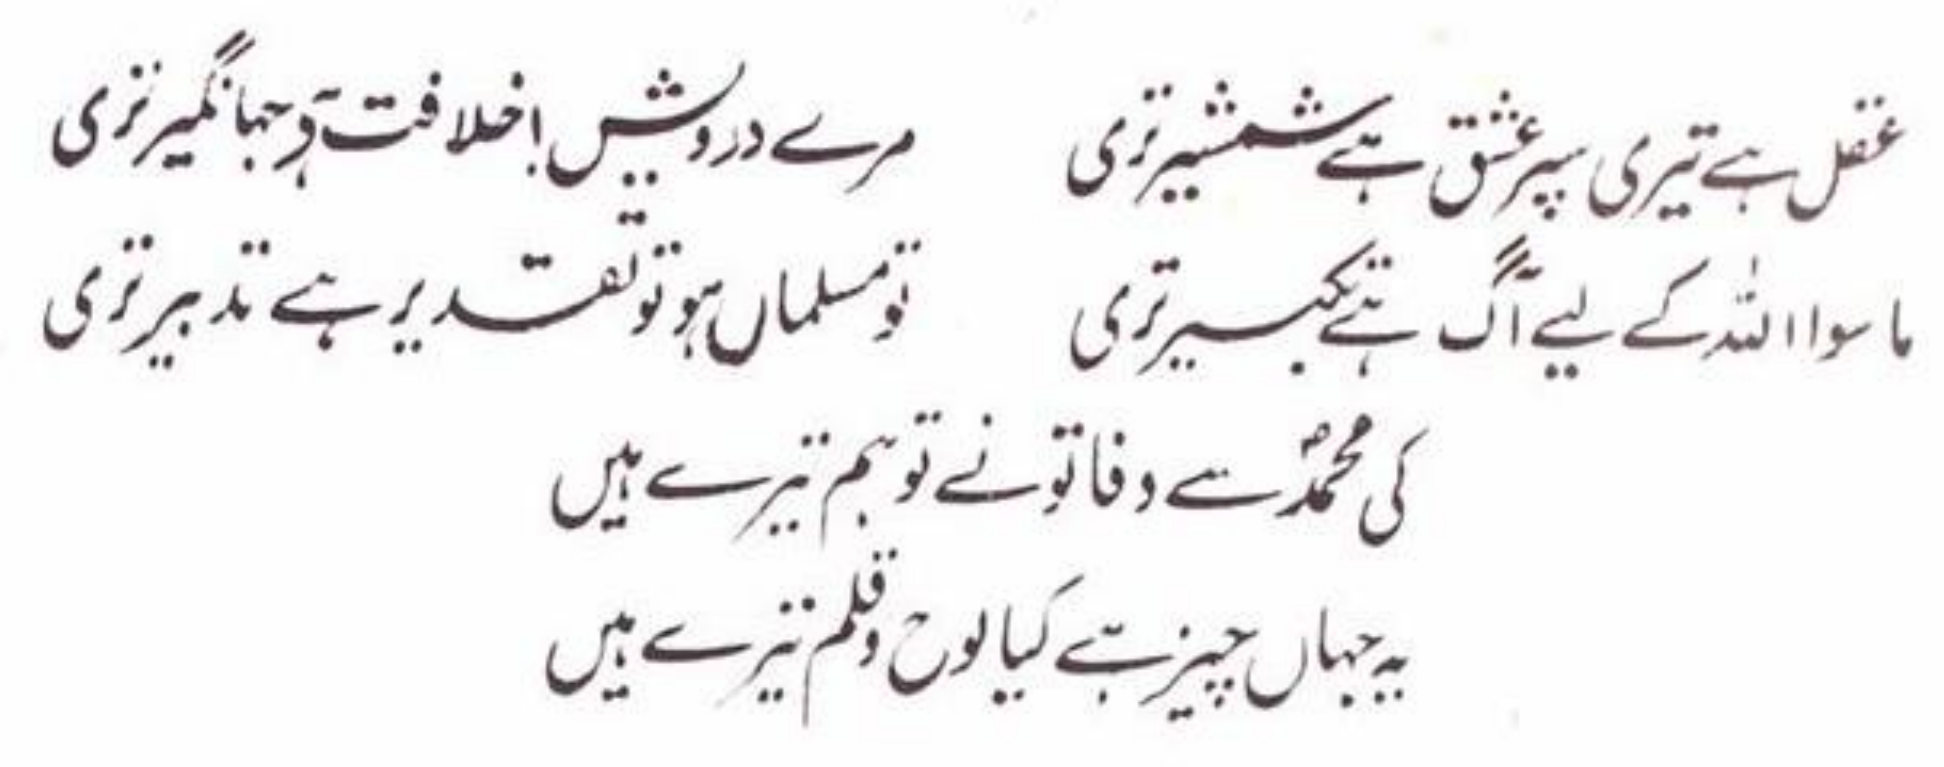 عقل ہے تیری سپر عشق ہے شمشیر تری مرے درویش! خلافت ہے جہانگیر تری
ماسوا اللہ کے لیے آگ ہے تکبیر تری تو مسلماں ہو تو تقدیر ہے تدبیر تری
کی محمدؐ سے وفا تو نے تو ہم تیرے ہیں
یہ جہاں چیز ہے کیا لوح و قلم تیرے ہیں